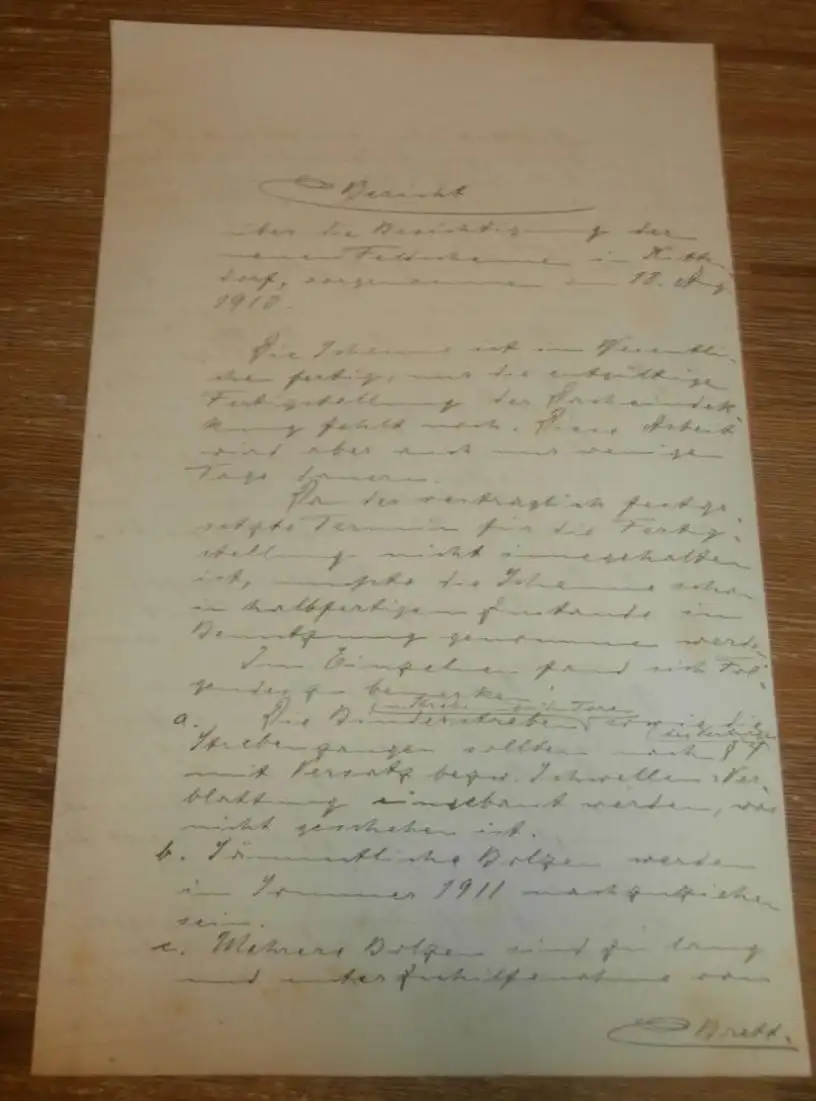 Bericht
über die Besichtigung der
neuen Feldscheune in
dorf, vorgenommen am 18. Aug.
1910.
Die Scheune ist im Wesentli-
chen fertig, nur die entgültige
Fertigstellung der Dacheindek-
kung fehlt noch. Diese Arbeit
wird aber auch nur wenige
Tage dauern.
Da der verträglich festge-
setzte Termin für die Fertig-
stellung nicht innegehalten
ist, mußte die Scheune schon
in halbfertigem Zustande in
Benutzung genommen werden.
Im Einzelnen fand sich Fol-
gendes zu bemerken:
a. Die Binderstreben sowie die
Strebenzangen sollten nach
mit Versatz bezw. Schwellen Ver-
blattung eingebaut werden, was
nicht geschehen ist.
b. Sämmtliche Bolzen werden
im Sommer 1911 nachzuziehen
sein.
c. Mehrere Bolzen sind zu lang
und unter Zuhilfenahme von
Brett.